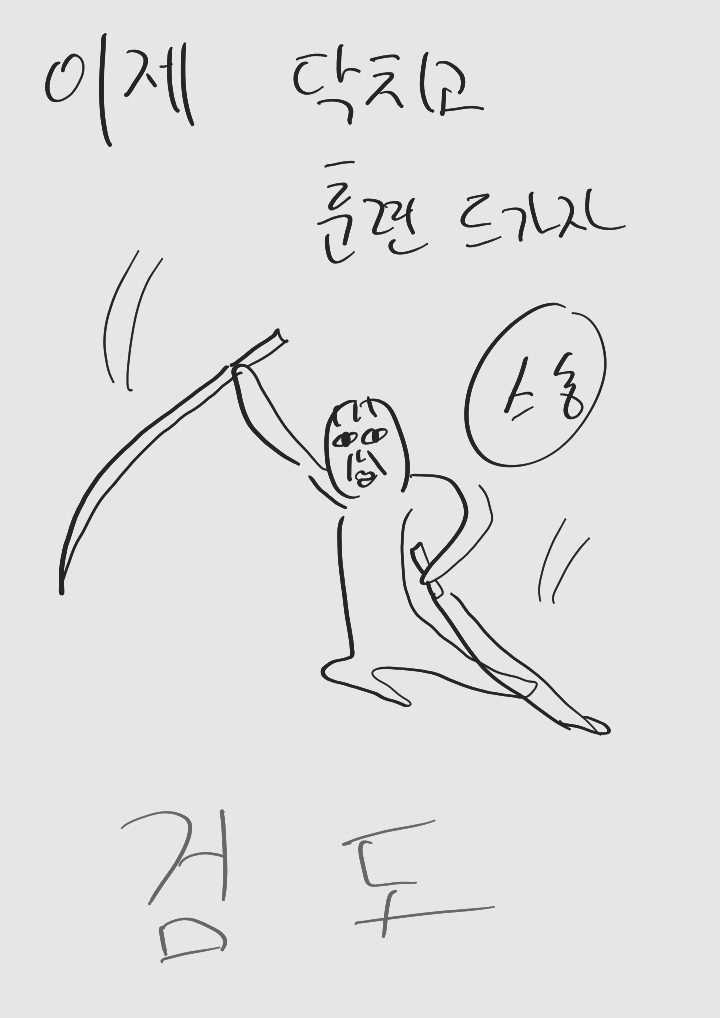 이제 닥치고
훈련 드가자
스승
검도